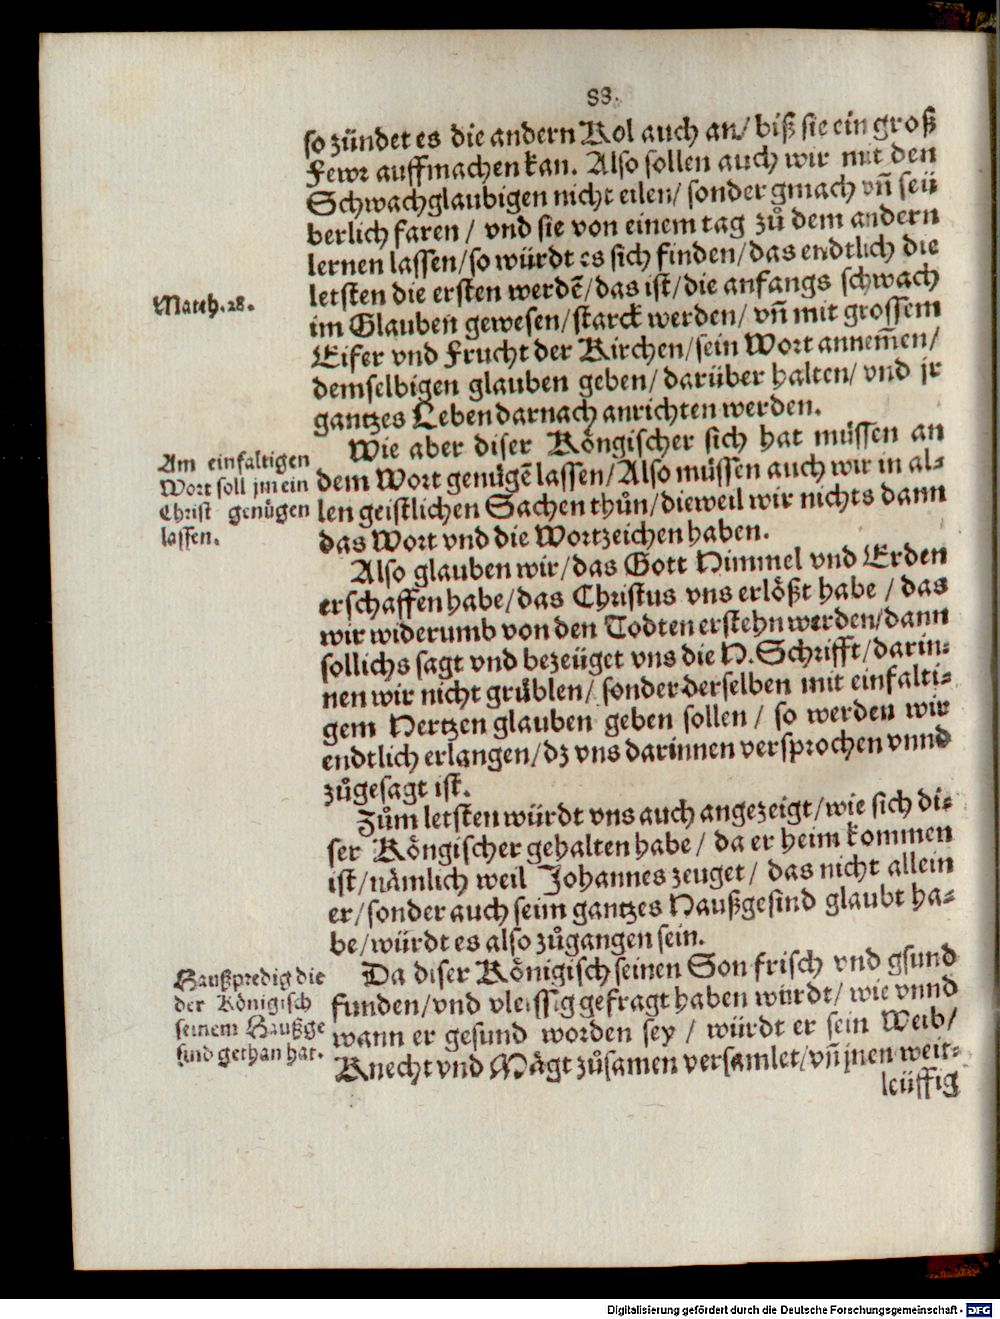 83.
so zündet es die andern Kol auch an/ biß sie ein groß
Fewr auffmachen kan. Also sollen auch wir mit den
Schwachglaubigen nicht eilen/ sonder gmach vñ seü
berlich faren / vnd sie von einem tag zů dem andern
lernen lassen/ so würdt es sich finden/ das endtlich die
letsten die ersten werdẽ/ das ist/ die anfangs schwach
Matth. 28.
im Glauben gewesen/ starck werden/ vñ mit grossem
Eifer vnd Frucht der Kirchen/ sein Wort annem̃en/
demselbigen glauben geben/ darüber halten/ vnd jr
gantzes Leben darnach anrichten werden.
Wie aber diser Köngischer sich hat müssen an
dem Wort genügẽ lassen/ Also müssen auch wir in al-
len geistlichen Sachen thůn/ dieweil wir nichts dann
das Wort vnd die Wortzeichen haben.
Am einfaltigen
Wort soll jm ein
Christ genügen
lassen.
Also glauben wir/ das Gott Himmel vnd Erden
erschaffen habe/ das Christus vns erlößt habe / das
wir widerumb von den Todten erstehn werden/ dann
sollichs sagt vnd bezeüget vns die H. Schrifft/ darin-
nen wir nicht grüblen/ sonder derselben mit einfalti-
gem Hertzen glauben geben sollen / so werden wir
endtlich erlangen/ dz vns darinnen versprochen vnnd
zůgesagt ist.
Zům letsten würdt vns auch angezeigt/ wie sich di-
ser Köngischer gehalten habe/ da er heim kommen
ist/ nämlich weil Johannes zeuget/ das nicht allein
er/ sonder auch seim gantzes Haußgesind glaubt ha-
be/ würdt es also zůgangen sein.
Da diser Königisch seinen Son frisch vnd gsund
funden/ vnd vleissig gefragt haben würdt/ wie vnnd
wann er gesund worden sey / würdt er sein Weib/
Knecht vnd Mägt zůsamen versamlet/ vñ jnen weit-
Haußpredig die
der Königisch
seinem Haußge
sind gethan hat.
leüffig
Digitalisierung gefördert durch die Deutsche Forschungsgemeinschaft - DFG